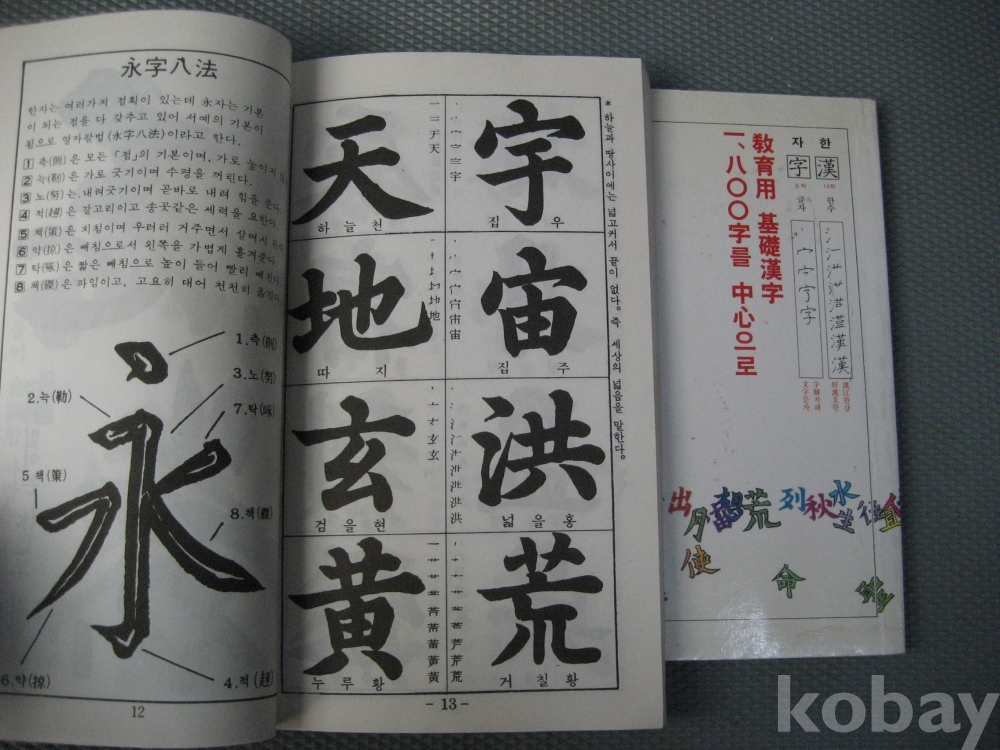 永字八法
한자는 여러가지 점획이 있는데 永자는 기본
이 되는 점을 다 갖추고 있어 서예의 기본이
됨으로 영자팔법(永字八法)이라고 한다.
1 측(側)은 모든 「점」의 기본이며, 가로 높이지
2 늑(勒)은 가로 긋기이며 수평을 꺼린다.
3 노(努)는, 내려긋기이며 곧바로 내려 힘을 준다.
4 적(趯)은 갈고리이고 송곳같은 세력을 요한다.
5 책(策)은 치침이며 우러러 거주면서 살며시
6 약(掠)은 삐침으로서 왼쪽을 가볍게 흘겨준다.
7 탁(啄)은 짧은 삐침으로 높이 들어 빨리 삐친다.
8 책(磔)은 파임이고, 고요히 대어 천천히 옮긴다.
永
1.측(側)
3.노(努)
2.늑(勒)
7.탁(啄)
5 책(策)
8.책(磔)
6.약(掠)
4.적(趯)
12
* 하늘과 땅사이에는 넓고커서 끝이 없다. 즉 세상의 넓음을 말한다.
天
하늘천
一二于天
地
따 지
玄
검을현
黄
누루황
宇
집 우
宙
집 주
洪
넓을홍
荒
거칠황
- 13 -
자 한
字 漢
敎育用 基礎漢字
一、八〇〇字를 中心으로
글자 한수
宀宁字
漢江한강
好漢호한
字解자해
文字문자
出 夕 荒 列 秋 水 生 往
使 命
kobay